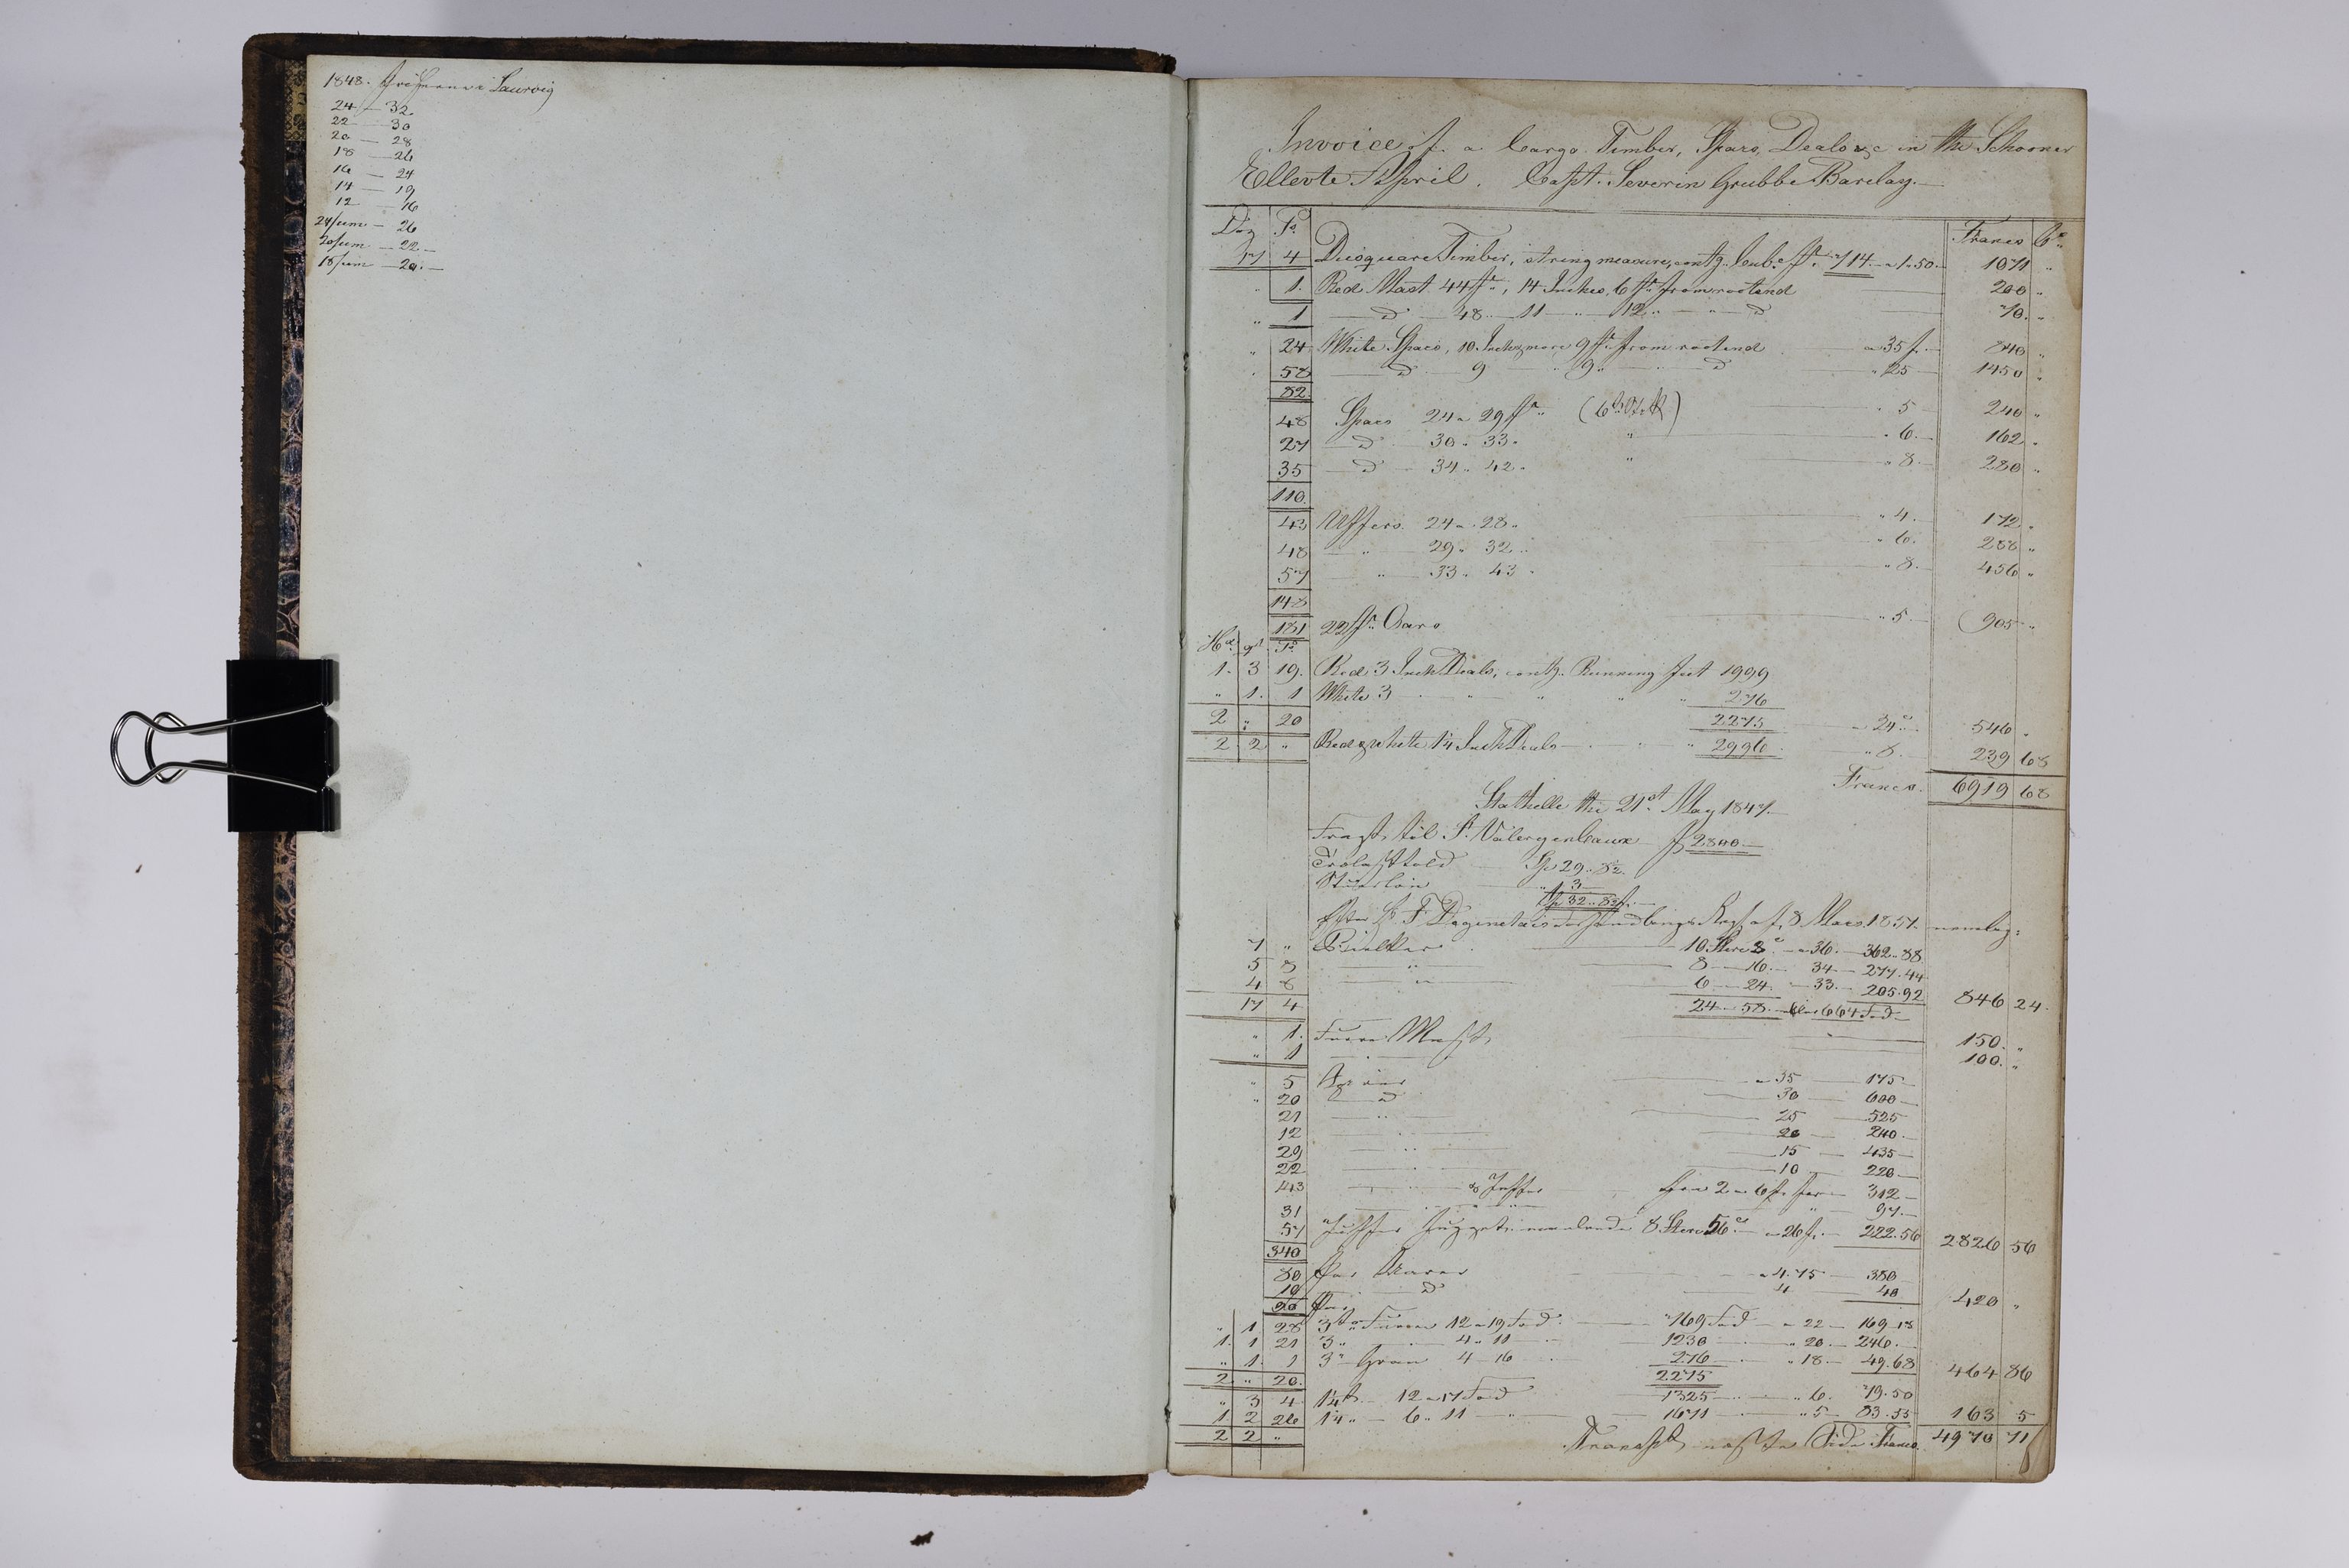 1848. i Laurvig
24 — 32
22 — 30
20 — 28
18 — 26
16 — 24
14 — 19
12 — 16
24 — 26
20 — 22 —
18 — 20. —
Invoice of a Cargo Timber, Spars, Deals &c in the Schooner
Ellevte April. Capt. Severin Grubbe Barclay. —
Francs Cs
17 4 Timber, string measure, contg. Cub. ft. 714 — a 1.50 — 1071 "
" 1. Red Mast 44 ft., 14 Inches, 6 ft. from rootend 200 "
" 1 — d — 48 — 11 — " — 12 " — " — d — 70. "
" 24 White Spars, 10 Inch & more 9 ft. from rootend a 35 f. — 840 "
" 58 — d — 9 " 9 " — d " 25 — 1450 "
82
48 Spars 24 a 29 ft. " 5 — 240 "
27 — d — 30 " 33 " " " 6. — 162 "
35 — d — 34 " 42 " " " 8. — 280 "
110.
43 Uffers 24 a 28 " " 4. — 172 "
48 — " — 29 " 32 " " 6. 288 "
57 — " — 33 " 43 " " 8. — 456 "
148
181 22 ft. Oars " 5. — 905 "
1. 3 19. Red 3 Inch Deals, contg. Running feet 1999
" 1. 1 White 3 " " " " 276
2 " 20 2275 — a 24 cs — 546 "
2 2 " Red & white 1¼ Inch Deals — " " 2996 " 8. — 239 68
Francs. 6919 68
Stathelle the 21st May 1847. —
Fragt til St. Valery en Caux f 2800 —
Sp 29. 82.
3 —
Sp 32. 82 —
8 Mars 1851 nemlig:
7 " Bielker — 10 Stere 8 a 36. — 362. 88
5 8 — " — 8 — 16. — 34 — 277. 44
4 8 — " — 6 — 24. — 33. — 205. 92 846 24.
17 4 24 — 58 — 664 Fod —
" 1. Furre Mast 150. "
" 1 — 100. "
" 5 a 35 — 175 —
" 20 — d 30 — 600 —
21 — " — 25 — 525
12 — " — 20 — 240. —
29 — " — 15 — 435 —
22 — " — 10 — 220 —
143 — " — fra 2 a 6 f. — 312 —
31 — " — 97. —
57 8 Stere 56 — a 26 f. — 222. 56 2826 56
340
80 Par Aarer — a 4.75 — 380 —
10 — d — 4 — 40
90 Par 420 "
" 1 28 3 " Furre 12 a 19 Fod. — 769 Fod — a 22 — 169. 18
1. 1 21 3 " — 4 " 11 — 1230 — " 20 — 246. —
" 1. 1 3 " Gran 4 — 16 — 276 — " 18 — 49. 68 464 86
2 " 20. 2275
" 3 4 1¼ — 12 a 17 Fod — 1325 — " 6. 79. 50
1 2 26 1¼ " — 6 " 11 — " — 1671 — " 5 — 83. 55 163 5
2 2 " Transp. næste Side Francs. 4970 71